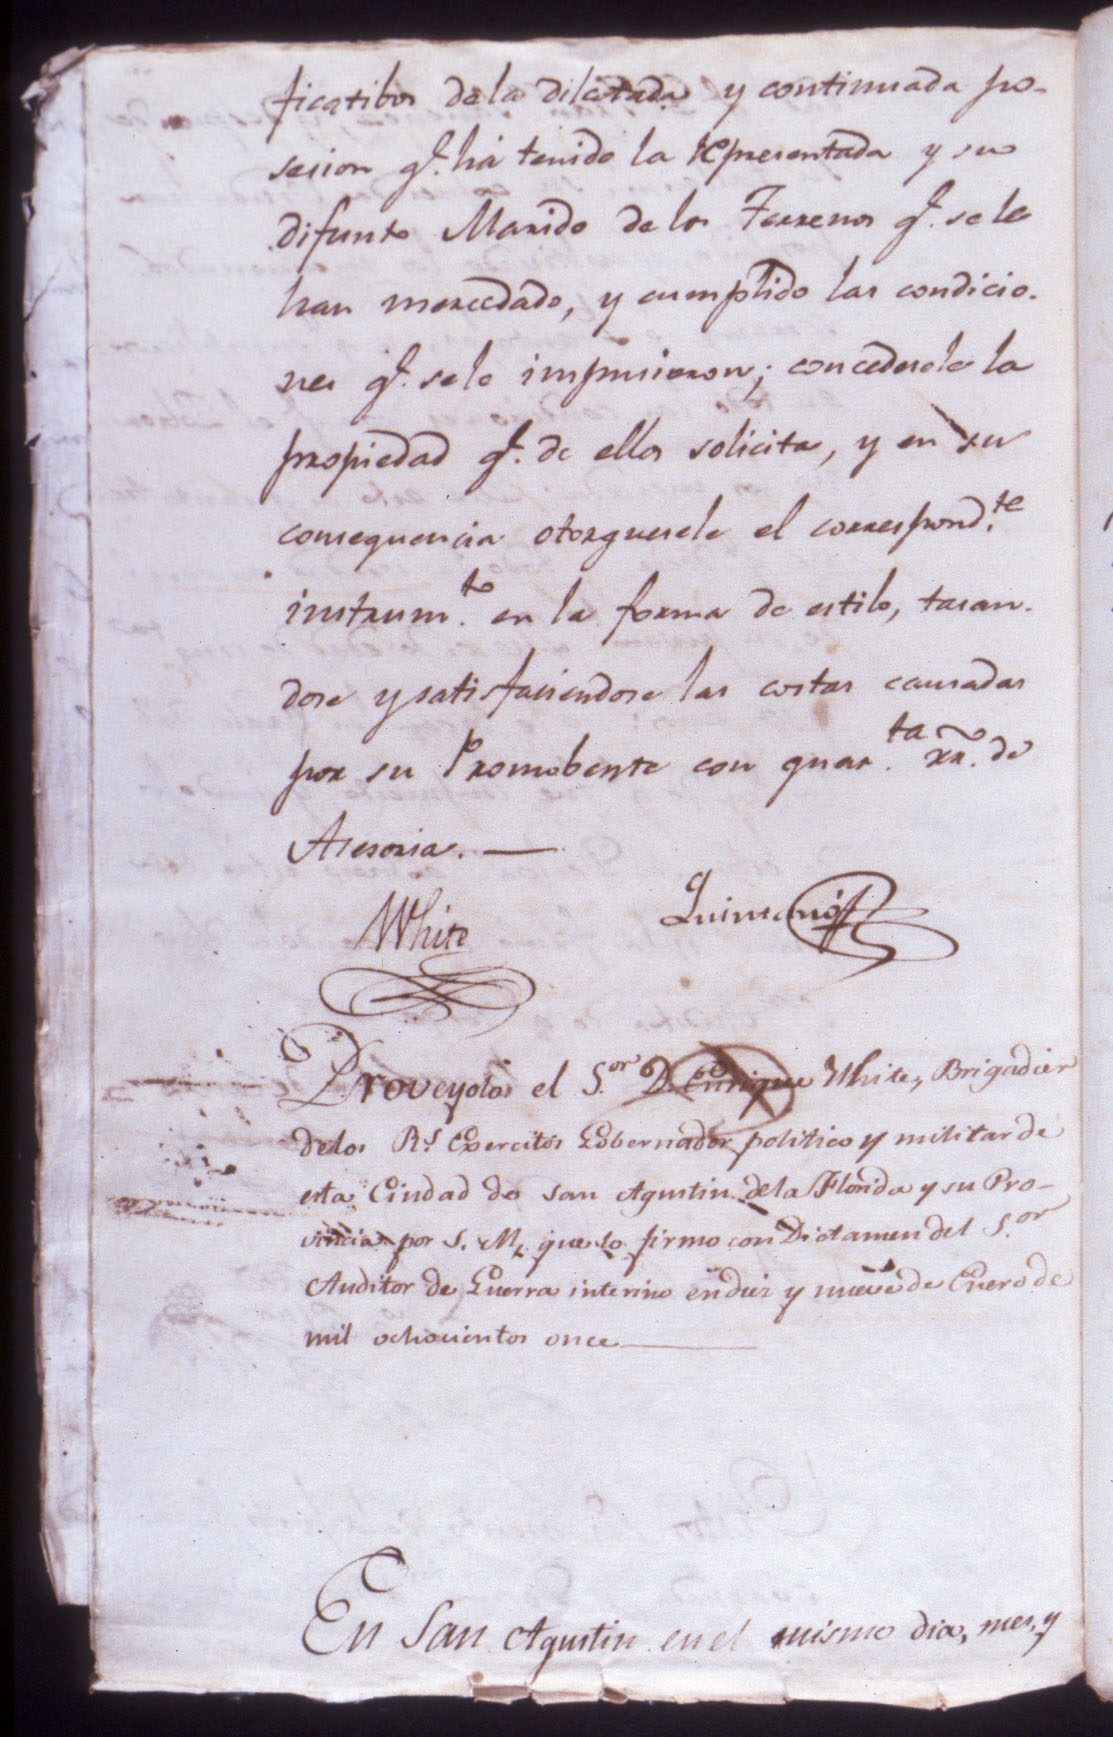 ficatibos de la dilatada y continuada po-
sesion q.^e ha tenido la representada y su
difunto Marido de los Terrenos q.^e se le
han mercedado, y cumplido las condicio-
nes q.^e se le impusieron; concedesele la
propiedad q.^e de ellos solicita, y en su
consequencia otorguesele el correspond.^te
instrum.^to en la forma de estilo, tasan-
dose y satisfaciendose las costas causadas
por su Promobente con quar.^ta rr.^s de
Asesoria. —
White
Proveyolo el S.^or D. Enrique White, Brigadier
de los R.^s Exercitos Gobernador politico y militar de
esta Ciudad de San Agustin de la Florida y su Pro-
vincia por S. M. que lo firmo con Dictamen del S.^or
Auditor de Guerra interino en diez y nueve de Enero de
mil ochocientos once —
En San Agustin en el mismo dia, mes, y